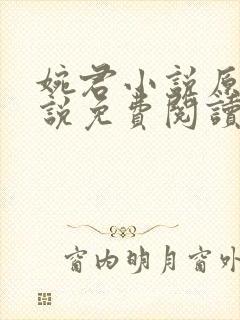 婉君小說原
說免費閱讀
窗内明月窗外